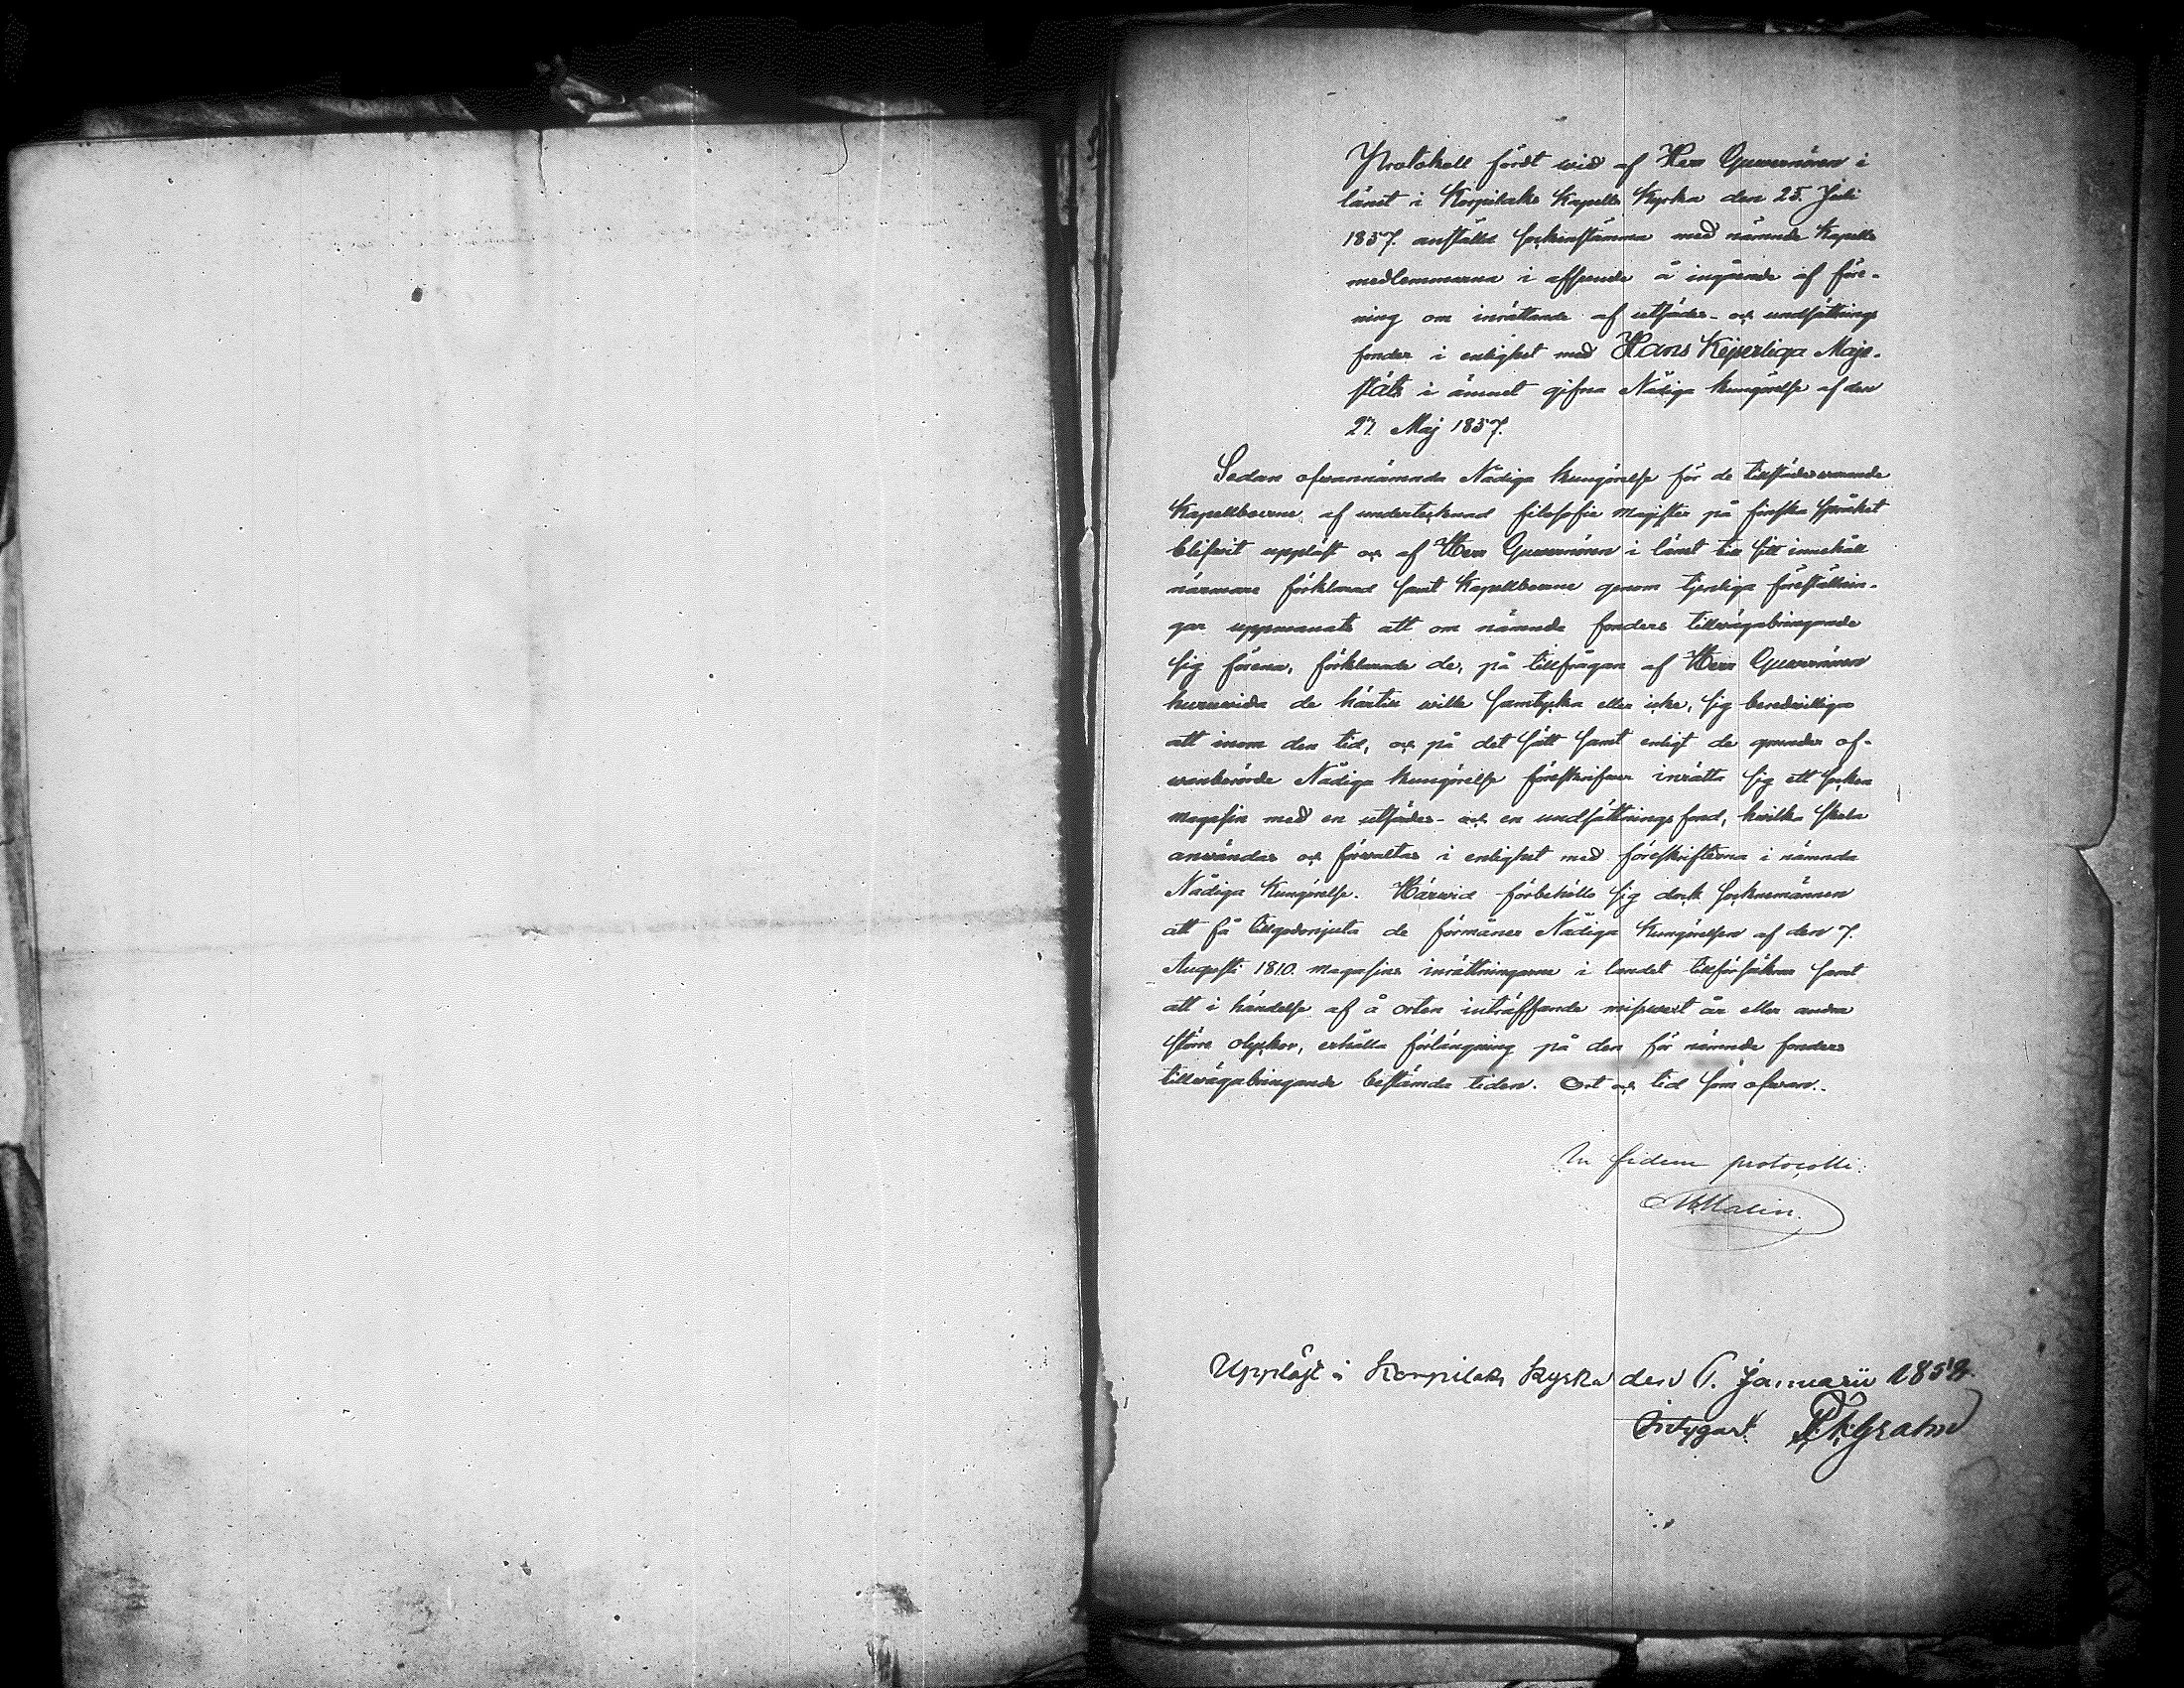 Protokoll fördt wid af Herr Guvernören i
länet i Korpilaks Kapells Kyrka den 25. Juli
1857. anställd sockenstämma med nämnde Kapells
medlemmarna i afseende å ingående af före-
ning om inrättande af utsädes- och undsättnings
fonder i enlighet med Hans Kejserliga Maje-
stäts i ämnet gifna Nådiga Kungörelse af den
27. Maj 1857.
Sedan ofwannämnda Nådiga Kungörelse för de tillstädeswarande
Kapellboerne af undertecknad filosofie Magister på finska språket
blifwit uppläst och af Herr Guvernören i länet till sitt innehåll
närmare förklarad samt Kapellboerne genom tjenliga föreställnin-
gar uppmanats att om nämnde fonders tillwägabringande
sig förena, förklarade de, på tillfrågan af Herr Guvernören
huruwida de härtill wille samtycka eller icke, sig beredwilliga
att inom den tid, och på det sätt samt enligt de grunder of-
wanberörde Nådiga Kungörelse föreskrifwer inrätta sig ett socken
magasin med en utsädes- och en undsättnings fond, hwilka skola
användas och förwaltas i enlighet med föreskrifterna i nämnda
Nådiga Kungörelse. Härwid förbehöllo sig dock socknemännen
att få tillgodonjuta de förmåner Nådiga Kungörelsen af den 7.
Augusti 1810. magasins inrättningarne i landet tillförsäkrar samt
att i händelse af å orten inträffande missväxt år eller andra
större olyckor, erhålla förlängning på den för nämnde fonders
tillwägabringande bestämda tiden. Ort och tid som ofwan.
In fidem protocolli:
Malin.
Uppläst i Korpilaks kyrka den 6. Januarii 1858.
intygar.